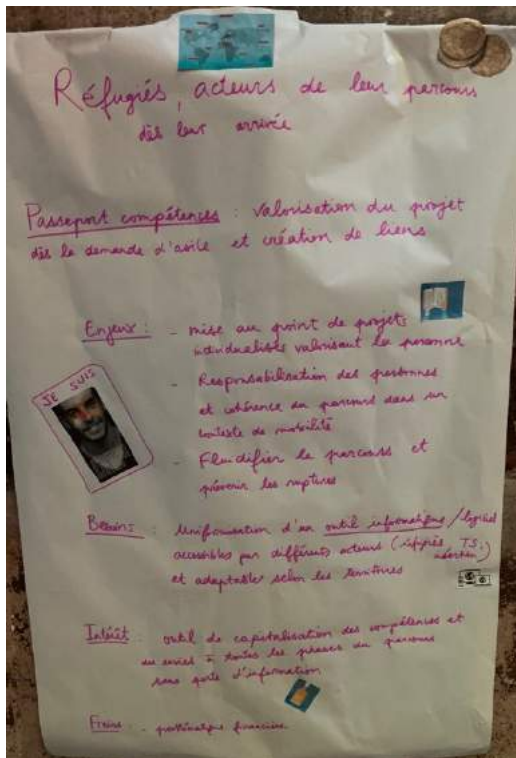 Réfugiés, acteurs de leur parcours
dès leur arrivée
Passeport compétences : valorisation du projet
dès la demande d'asile et création de liens
Enjeux : - mise au point de projets
individualisés valorisant la personne
JE SUIS
- Responsabilisation des personnes
et cohérence du parcours dans un
contexte de mobilité
- Fluidifier le parcours et
prévenir les ruptures
Besoins : Uniformisation d'un outil informatique / logiciel
accessibles par différents acteurs ( TS,
et adaptable selon les territoires
Intérêt : outil de capitalisation des compétences et
des envies à toutes les phases du parcours
sans perte d'information
Freins : - problématique financière.